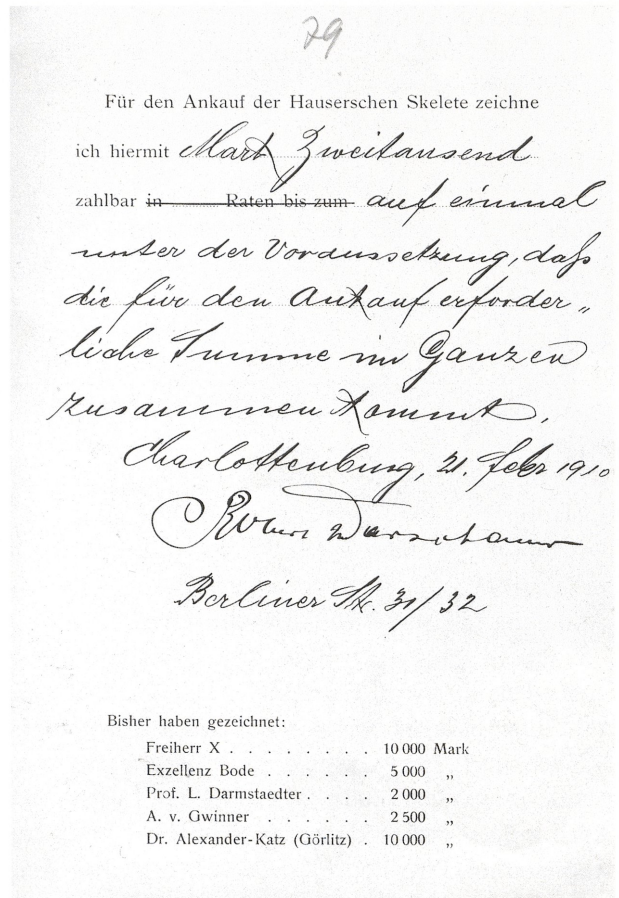 79
Für den Ankauf der Hauserschen Skelete zeichne
ich hiermit Mark Zweitausend
zahlbar in ........ Raten bis zum auf einmal
unter der Voraussetzung, daß
die für den Ankauf erforder„
liche Summe im Ganzen
zusammen kommt.
Charlottenburg, 21. Febr 1910
Robert Warschauer
Berliner Str. 31/32
Bisher haben gezeichnet:
Freiherr X . . . . . . . . 10 000 Mark
Exzellenz Bode . . . . . . 5 000 „
Prof. L. Darmstaedter . . . . 2 000 „
A. v. Gwinner . . . . . . 2 500 „
Dr. Alexander-Katz (Görlitz) . 10 000 „